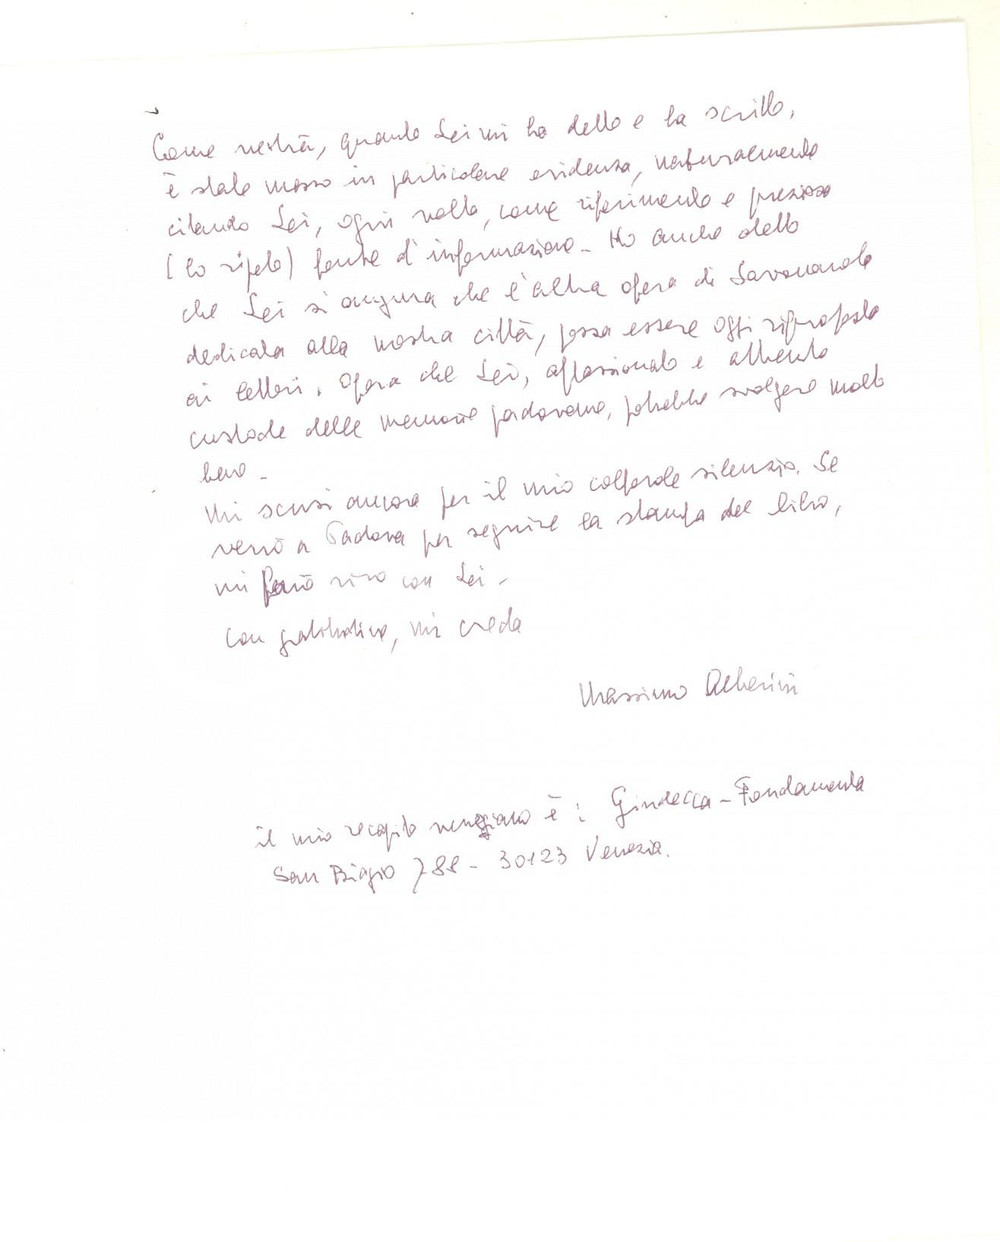 Come vedrà, quanto Lei mi ha detto e ha scritto,
è stato messo in particolare evidenza, naturalmente
citando Lei, ogni volta, come riferimento e preziosa
(lo ripeto) fonte d'informazione - Ho anche detto
che Lei si augura che l'altra opera di Savonarola
dedicata alla nostra città, possa essere oggi riproposta
ai lettori. Opera che Lei, appassionato e attento
custode delle memorie padovane, potrebbe svolgere molto
bene -
Mi scusi ancora per il mio colpevole silenzio. Se
verrò a Padova per seguire la stampa del libro,
mi farò vivo con Lei -
Con gratitudine, mi creda
Massimo Alberini
il mio recapito veneziano è: Giudecca - Fondamenta
San Biagio 788 - 30123 Venezia.